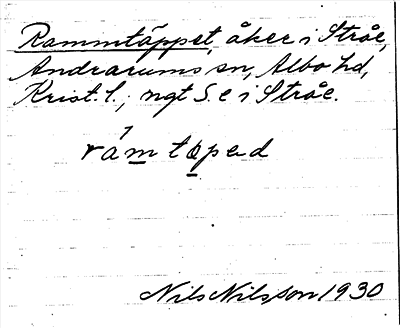 Rammtäppet, åker i Stråe,
Andrarums sn, Albo hd,
Krist. l., ngt S. e i Stråe.
rámtøped
Nils Nilsson 1930